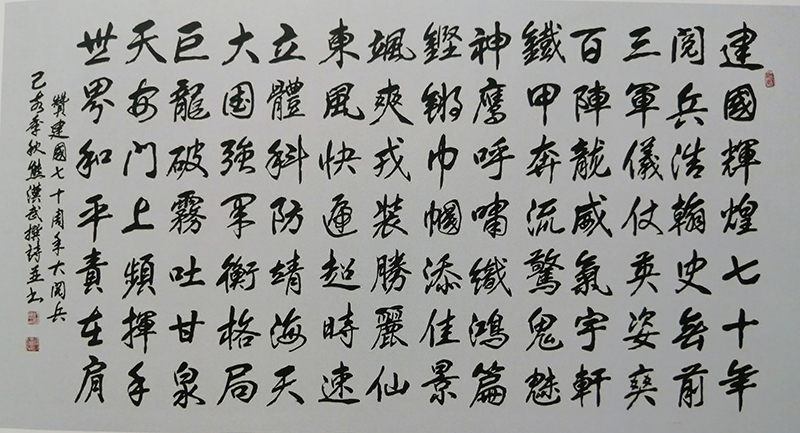 建國輝煌七十年
閲兵浩翰史無前
三軍儀仗英姿奕
百陣龍威氣宇軒
鐵甲奔流驚鬼魅
神鷹呼嘯織鴻篇
鏗鏘巾幗添佳景
颯爽戎裝勝麗仙
東風快遞超時速
立體科防靖海天
大国強軍衡格局
巨龍破霧吐甘泉
天安門上頻揮手
世界和平責在肩
贊建國七十周年大閲兵
己亥季秋熊漢武撰詩並書